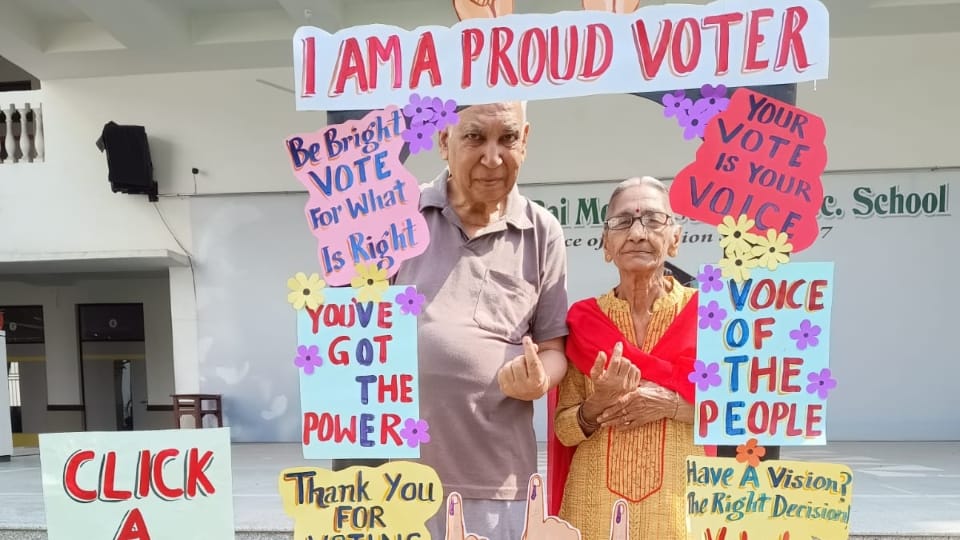 I AM A PROUD VOTER
Be Bright
VOTE
For What
Is Right
YOUR
VOTE
IS YOUR
VOICE
c. School
YOU'VE
GOT
THE
POWER
VOTE
VOICE
OF
THE
PEOPLE
VOTE
CLICK
A
Thank You
FOR
VOTING
Have A Vision?
The Right Decision!